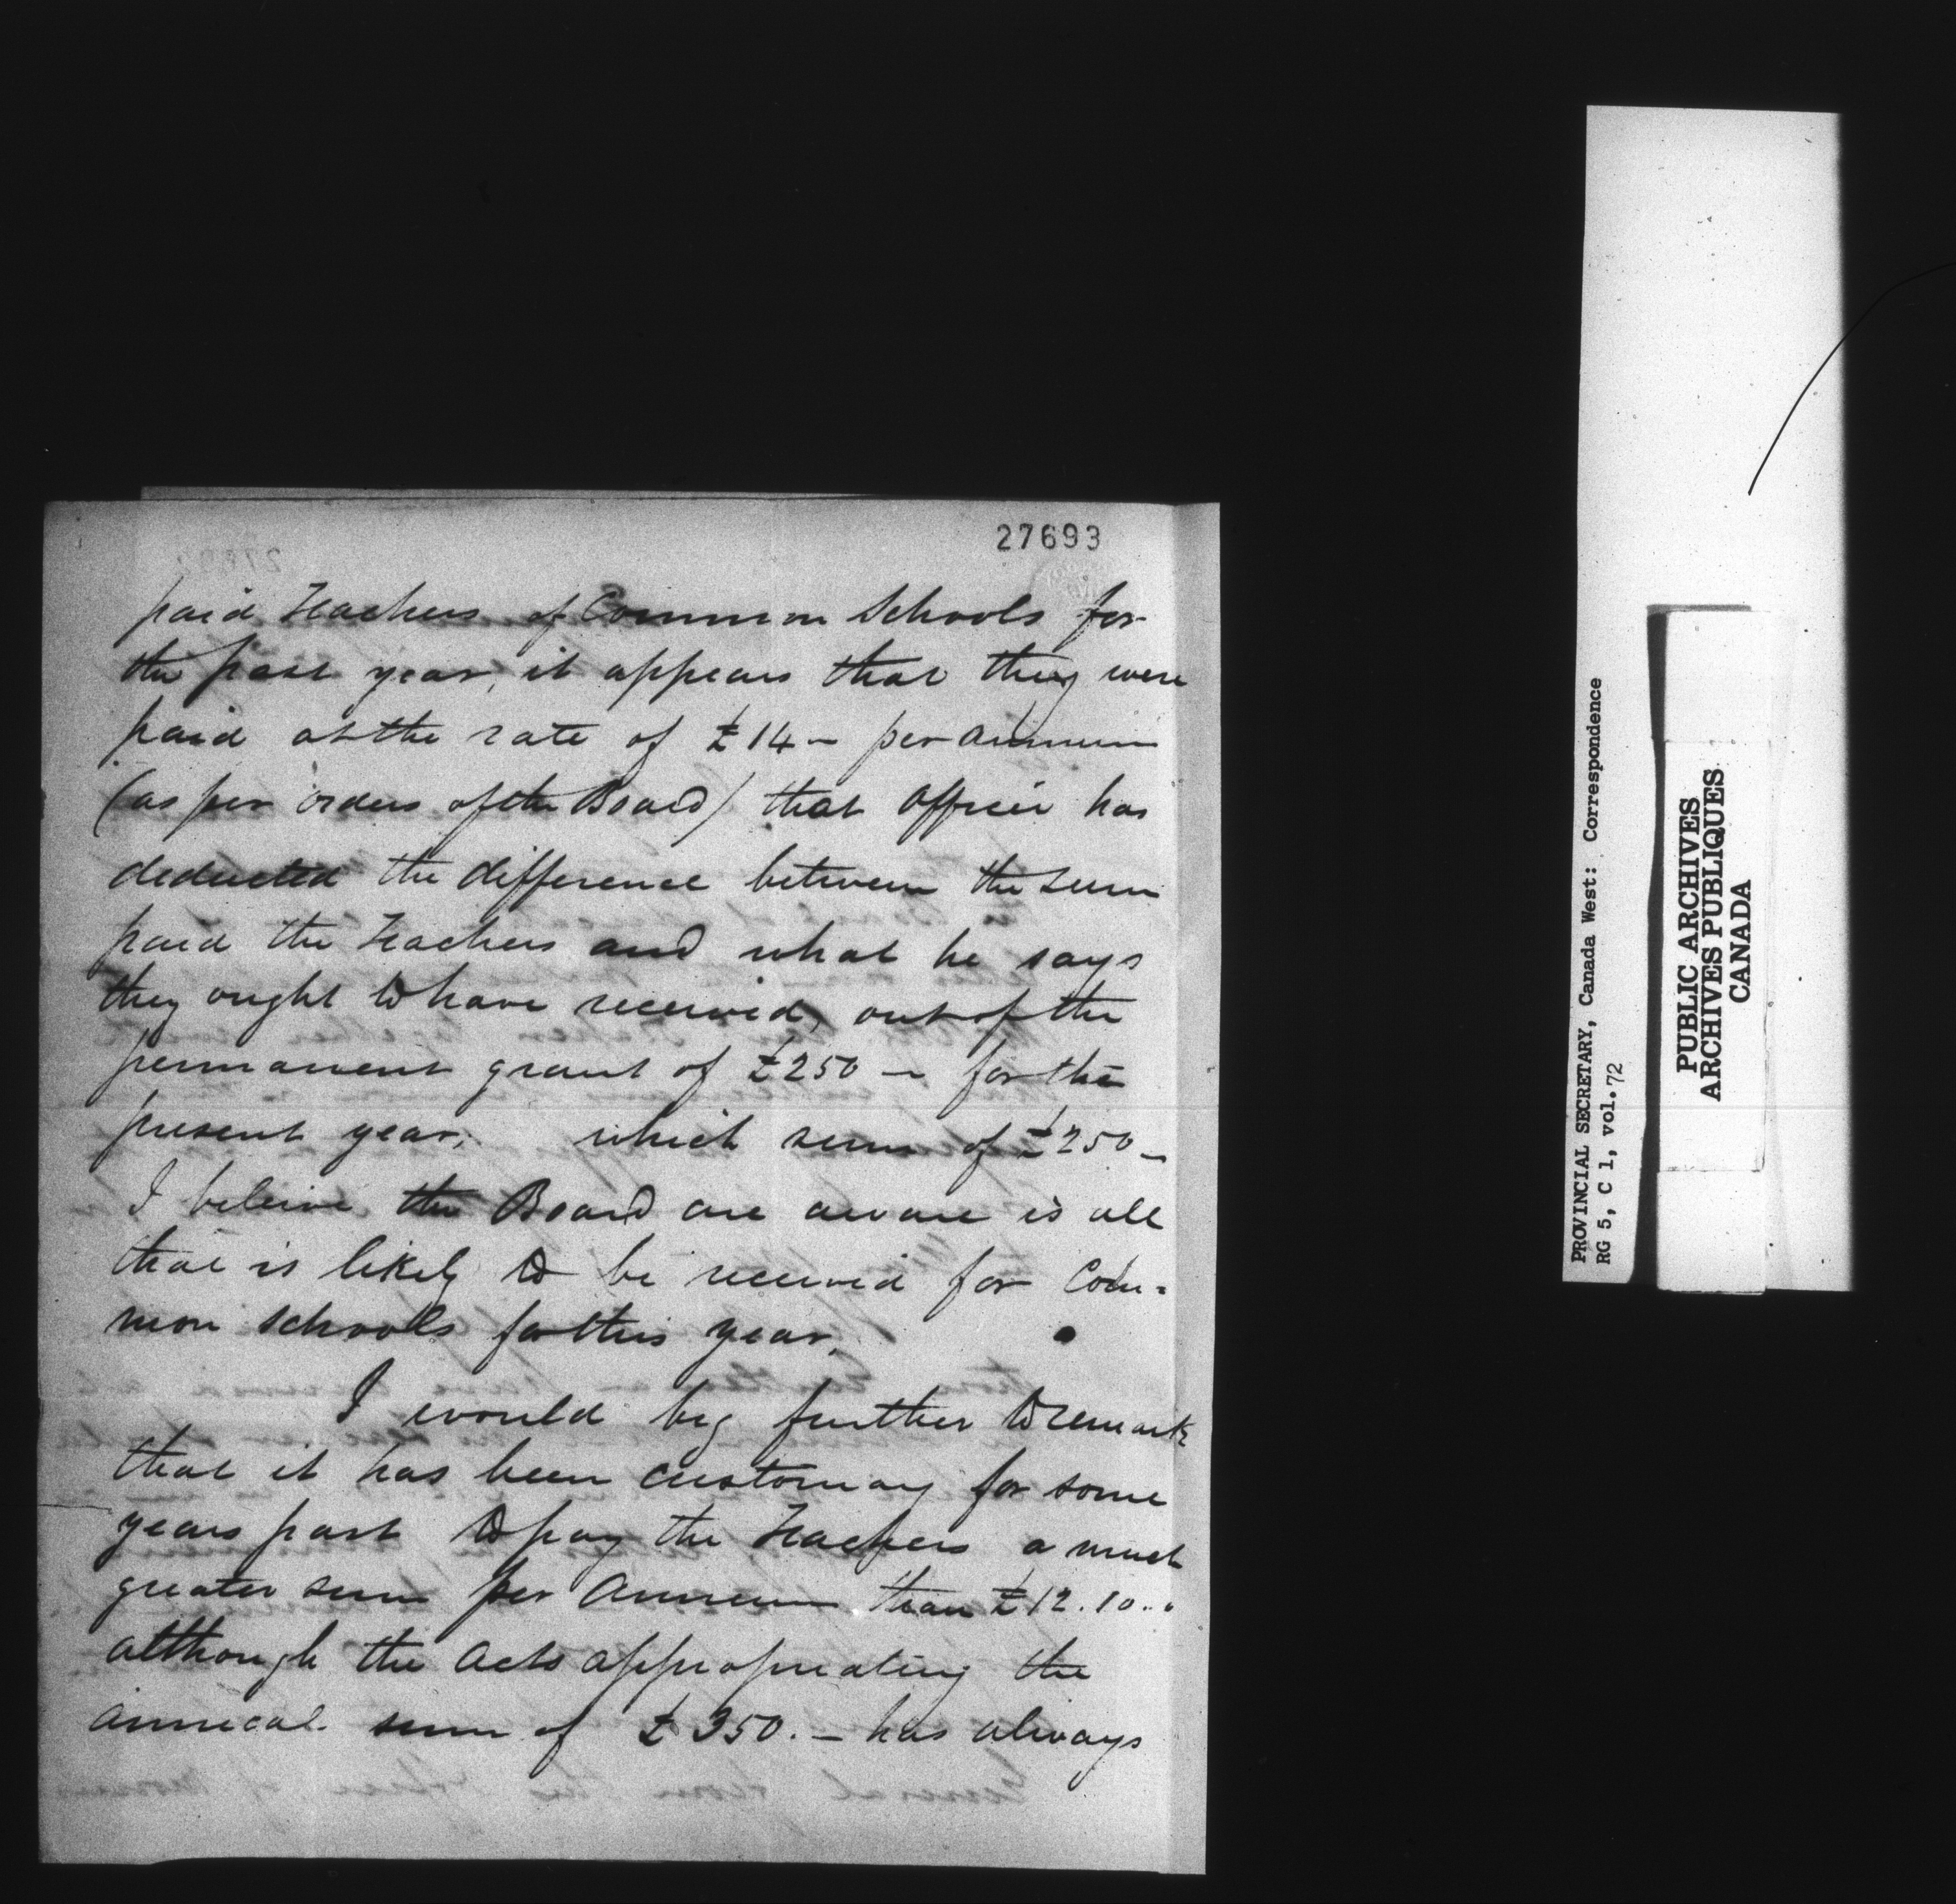 27693
paid Teachers of Common Schools for
the past year, it appears that they were
paid at the rate of £14 – per annum
(as per orders of the Board) that officer has
deducted the difference between the sum
paid the Teachers and what he says
they ought to have received, out of the
permanent grant of £250 – for the
present year, which sum of £250 –
I beleive the Board are aware is all
that is likely to be received for Com=
mon Schools for this year.
I would beg further to remark
that it has been customary for some
years past to pay the Teachers a much
greater sum per Annum than £12.10..
although the Acts appropriating the
annual sum of £350. – has always
PROVINCIAL SECRETARY, Canada West: Correspondence
RG 5, C 1, vol. 72
PUBLIC ARCHIVES
ARCHIVES PUBLIQUES
CANADA